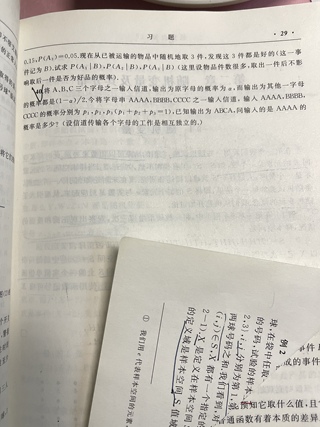 习 题
· 29 ·
0.15,P(A₃)=0.05.现在从已被运输的物品中随机地取3件,发现这3件都是好的(这一事
件记为B).试求P(A₁|B),P(A₂|B),P(A₃|B)(这里设物品件数很多,取出一件后不影
响取后一件是否为好品的概率).
将A,B,C三个字母之一输入信道,输出为原字母的概率为α,而输出为其他一字母
的概率都是(1-α)/2.今将字母串AAAA,BBBB,CCCC之一输入信道,输入AAAA,BBBB,
CCCC的概率分别为p₁,p₂,p₃(p₁+p₂+p₃=1),已知输出为ABCA,问输入的是AAAA的
概率是多少?(设信道传输各个字母的工作是相互独立的.)
例2
球,在袋中任取
的号码,试验的样本
2,3},i,j分别为第1,第
两球号码之和.我们看到,对
(i,j)∈S,X都有一个指定的
2-1).X是定义在样本空间
的定义域是样本空间S,值域
① 我们用e代表样本空间的元素
预知它取什么值,且
通函数有着本质的差异